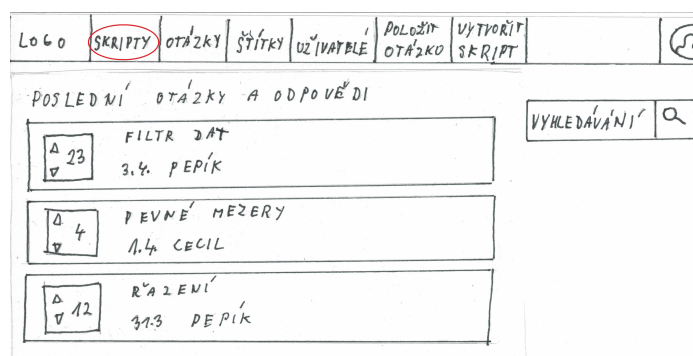 LOGO SKRIPTY OTÁZKY ŠTÍTKY UŽIVATELÉ POLOŽIT OTÁZKO VYTVOŘIT SKRIPT
POSLEDNÍ OTÁZKY A ODPOVĚDI
VYHLEDÁVÁNÍ
23 FILTR DAT
3.4. PEPÍK
4 PEVNÉ MEZERY
1.4. CECIL
12 ŘAZENÍ
31.3 PEPÍK